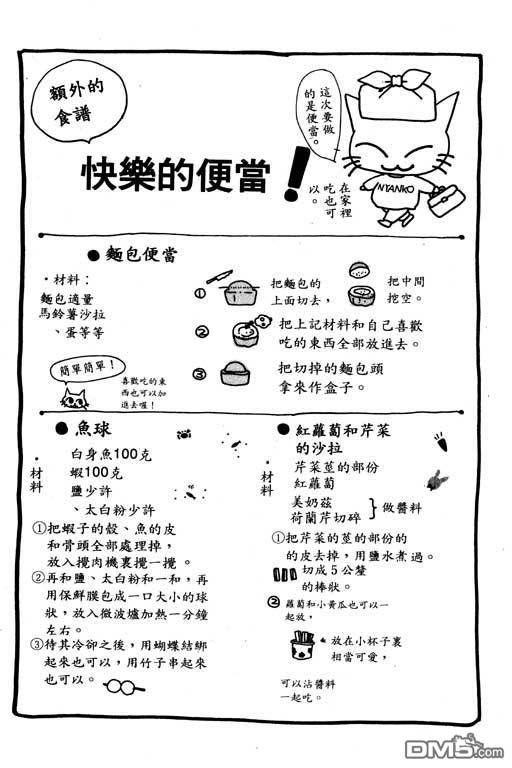 額外的
食譜
快樂的便當！
這次要做
的是便當。
NYANKO
在家裡
吃也可
以。
●麵包便當
・材料：
麵包適量
馬鈴薯沙拉
、蛋等等
簡單簡單！
喜歡吃的東
西也可以加
進去喔！
① 把麵包的
上面切去，
把中間
挖空。
② 把上記材料和自己喜歡
吃的東西全部放進去。
③ 把切掉的麵包頭
拿來作盒子。
●魚球
・材料
白身魚100克
蝦100克
鹽少許
、太白粉少許
①把蝦子的殼、魚的皮
和骨頭全部處理掉，
放入攪肉機裏攪一攪。
②再和鹽、太白粉和一和，再
用保鮮膜包成一口大小的球
狀，放入微波爐加熱一分鐘
左右。
③待其冷卻之後，用蝴蝶結綁
起來也可以，用竹子串起來
也可以。
●紅蘿蔔和芹菜
的沙拉
・材料
芹菜莖的部份
紅蘿蔔
美奶茲
荷蘭芹切碎
做醬料
①把芹菜的莖的部份的
的皮去掉，用鹽水煮過。
切成5公釐
的棒狀。
② 蘿蔔和小黃瓜也可以一
起放，
放在小杯子裏
相當可愛，
可以沾醬料
一起吃。
DM5.com